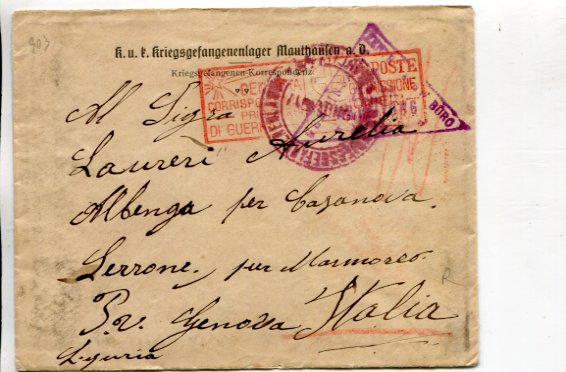 903
K. u. k. Kriegsgefangenenlager Mauthausen a. D.
Kriegsgefangenen-Korrespondenz
POSTE
CORRISPO
PRI
DI GUERR
BÜRO
Al Sigra
Laureri Aurelia
Albenga per Casanova
Lerrone, per Marmoreo
P.v. Genova Italia
Liguria
R